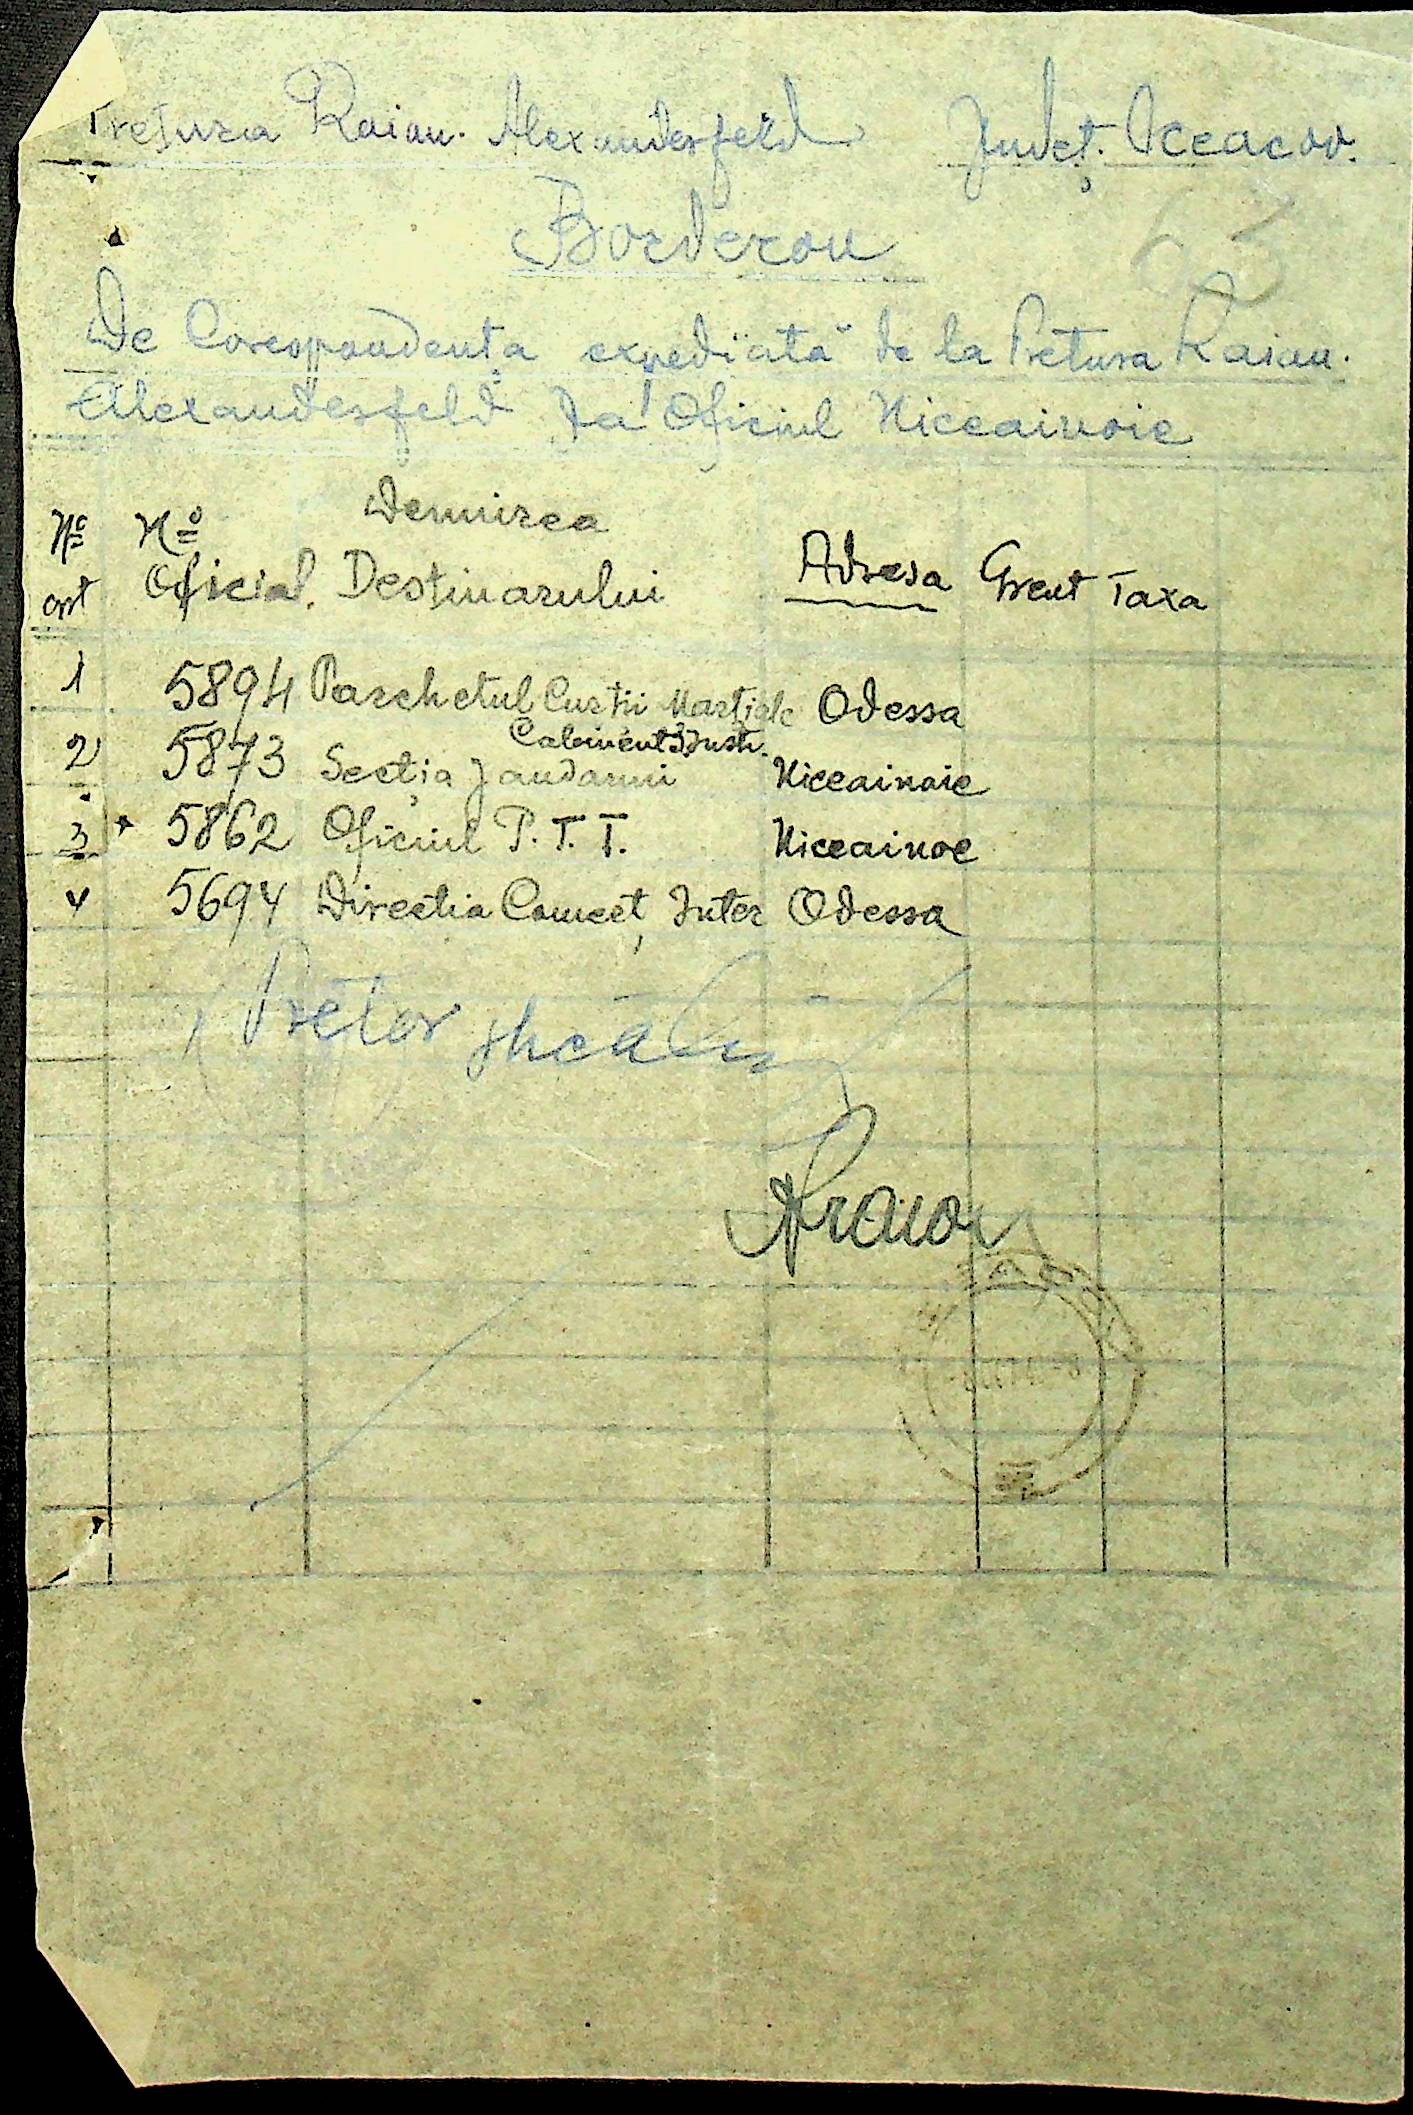 Pretura Raion. Alexanderfeld Județ. Oceacov.
63
Borderou
De Corespondența expediată de la Pretura Raion.
Alexanderfeld La Oficiul Niceainoie
Nº ort Nº Oficial. Denmirea Destinarului Adresa Greut Taxa
1 5894 Parchetul Curtii Marțiale Cabinent 3 Instr. Odessa
2 5873 Secția Jandarmi Niceainoie
3 5862 Oficiul P.T.T. Niceainoe
4 5694 Directia Comert, Inter Odessa
Pretor